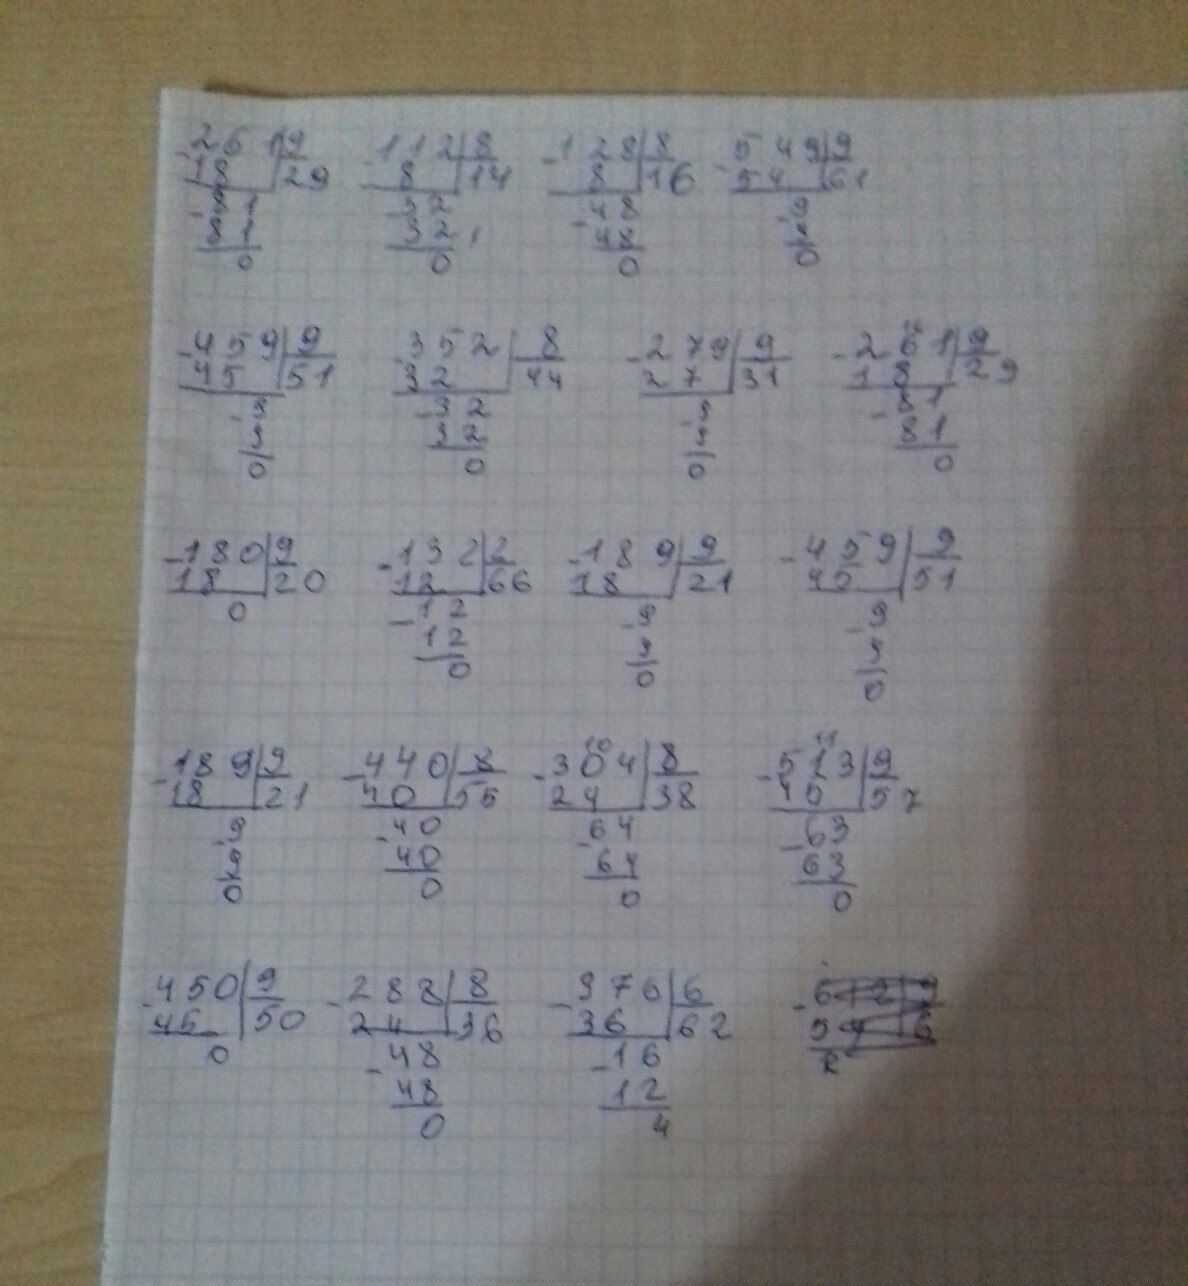 -261|9 -112|8 -128|8 -549|9
18 29 8 14 8 16 54 61
-81 -32 -48 -9
81 32 48 9
0 0 0 0
-459|9 -352|8 -279|9 -261|9
45 51 32 44 27 31 18 29
-9 -32 -9 -81
9 32 9 81
0 0 0 0
-180|9 -132|2 -189|9 -459|9
18 20 12 66 18 21 45 51
0 -12 -9 -9
12 9 9
0 0 0
10 11
-189|9 -440|8 -304|8 -513|9
18 21 40 55 24 38 45 57
-9 -40 -64 -63
9 40 64 63
0 0 0 0
-450|9 -288|8 -376|6
45 50 24 36 36 62
0 -48 -16
48 12
0 4